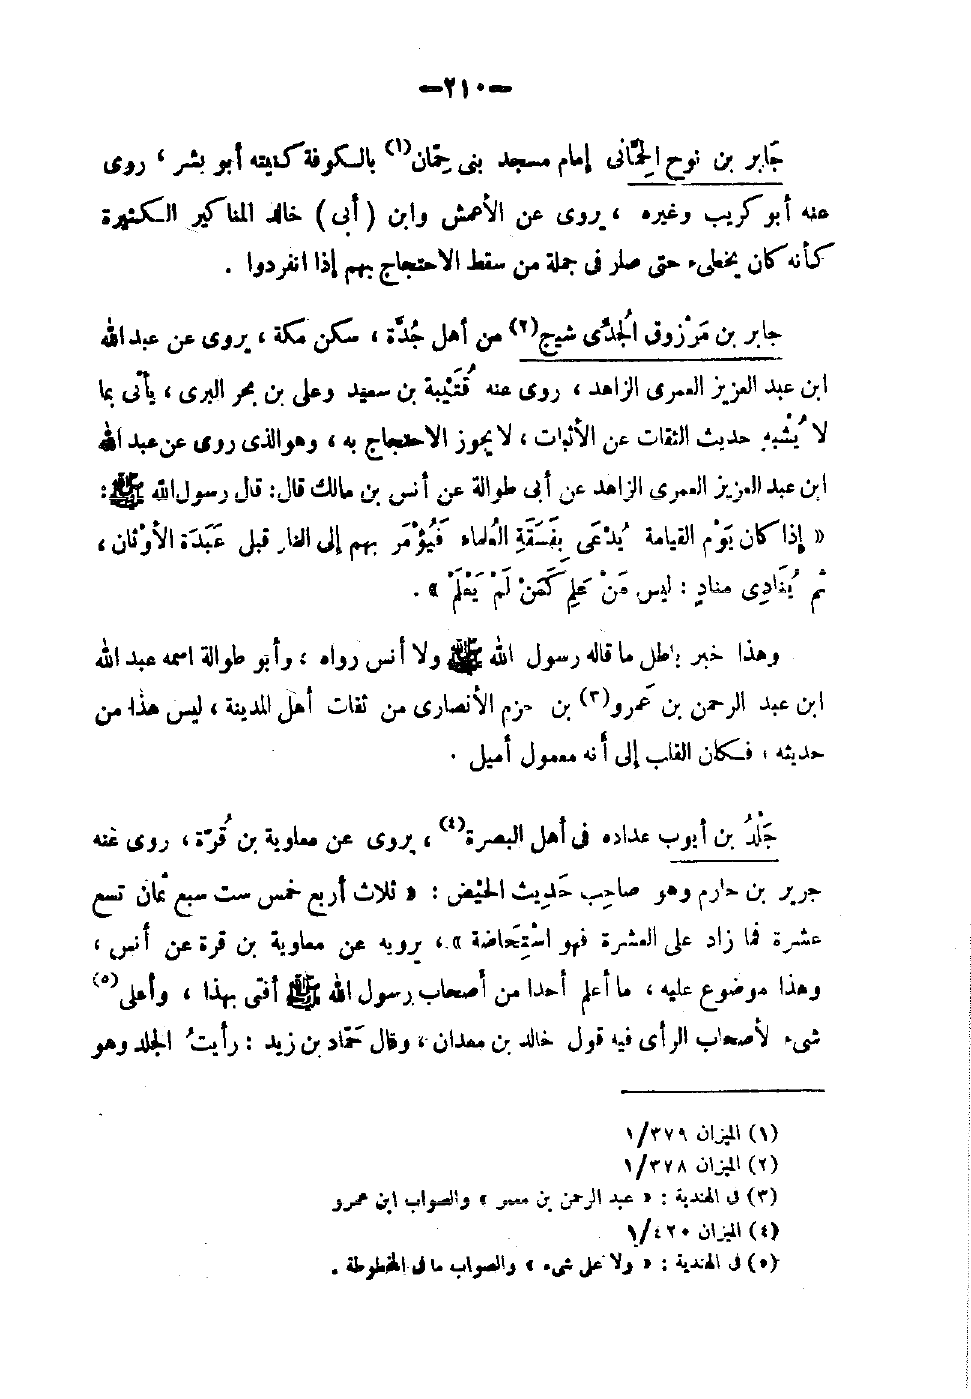 —٢١٠—
جَابر بن نوح الحِمَّانى إمام مسجد بنى حِمّان(١) بالكوفة كنيته أبو بشر ، روى
عنه أبو كريب وغيره ، يروى عن الأعمش وابن (أبى) خالد المناكير الكثيرة
كأنه كان يخطىء حتى صار فى جملة من سقط الاحتجاج بهم إذا انفردوا .
جابر بن مَرْزوق الجُدّى شيخ(٢) من أهل جُدَّة ، سكن مكة ، يروى عن عبد الله
ابن عبد العزيز العمرى الزاهد ، روى عنه قُتَيْبة بن سعيد وعلى بن بحر البرى ، يأتى بما
لا يُشْبه حديث الثقات عن الأثبات ، لا يجوز الاحتجاج به ، وهو الذى روى عن عبد الله
ابن عبد العزيز العمرى الزاهد عن أبى طوالة عن أنس بن مالك قال: قال رسول الله ﷺ :
« إذا كان يَوْم القيامة يُدْعَى بِفَسَقَةِ العُلماء فَيُؤْمَر بهم إلى النار قبل عَبَدَة الأوْثان ،
ثم يُنَادِى منادٍ : ليس مَنْ عَلِم كَمَنْ لَمْ يَعْلَمْ » .
وهذا خبر باطل ما قاله رسول الله ﷺ ولا أنس رواه ، وأبو طوالة اسمه عبد الله
ابن عبد الرحمن بن عَمرو(٣) بن حزم الأنصارى من ثقات أهل المدينة ، ليس هذا من
حديثه ، فكان القلب إلى أنه معمول أميل .
جَلْدُ بن أيوب عداده فى أهل البصرة(٤) ، يروى عن معاوية بن قُرّة ، روى عنه
جرير بن حازم وهو صاحِب حَدِيث الحَيْض : « ثلاث أربع خمس ست سبع ثمان تسع
عشرة فما زاد على العشرة فهو اسْتِحَاضة » ، يرويه عن معاوية بن قرة عن أنس ،
وهذا موضوع عليه ، ما أعلم أحدا من أصحاب رسول الله ﷺ أفتى بهذا ، وأعلى(٥)
شىء لأصحاب الرأى فيه قول خالد بن معدان ، وقال حَمّاد بن زيد : رأيتُ الجلد وهو
(١) الميزان ١/٣٧٩
(٢) الميزان ١/٣٧٨
(٣) فى الهندية : « عبد الرحمن بن معمر » والصواب ابن عمرو
(٤) الميزان ١/٤٢٠
(٥) فى الهندية : « ولا على شىء » والصواب ما فى المخطوطة .